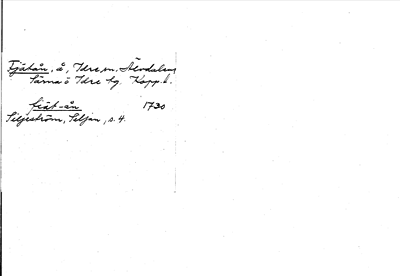 Fjätån, å, Idre sn, Älvdalens,
Särna o Idre tg. Kopp. l.
fiät-ån 1730
Siljeström, Siljan, s. 4.